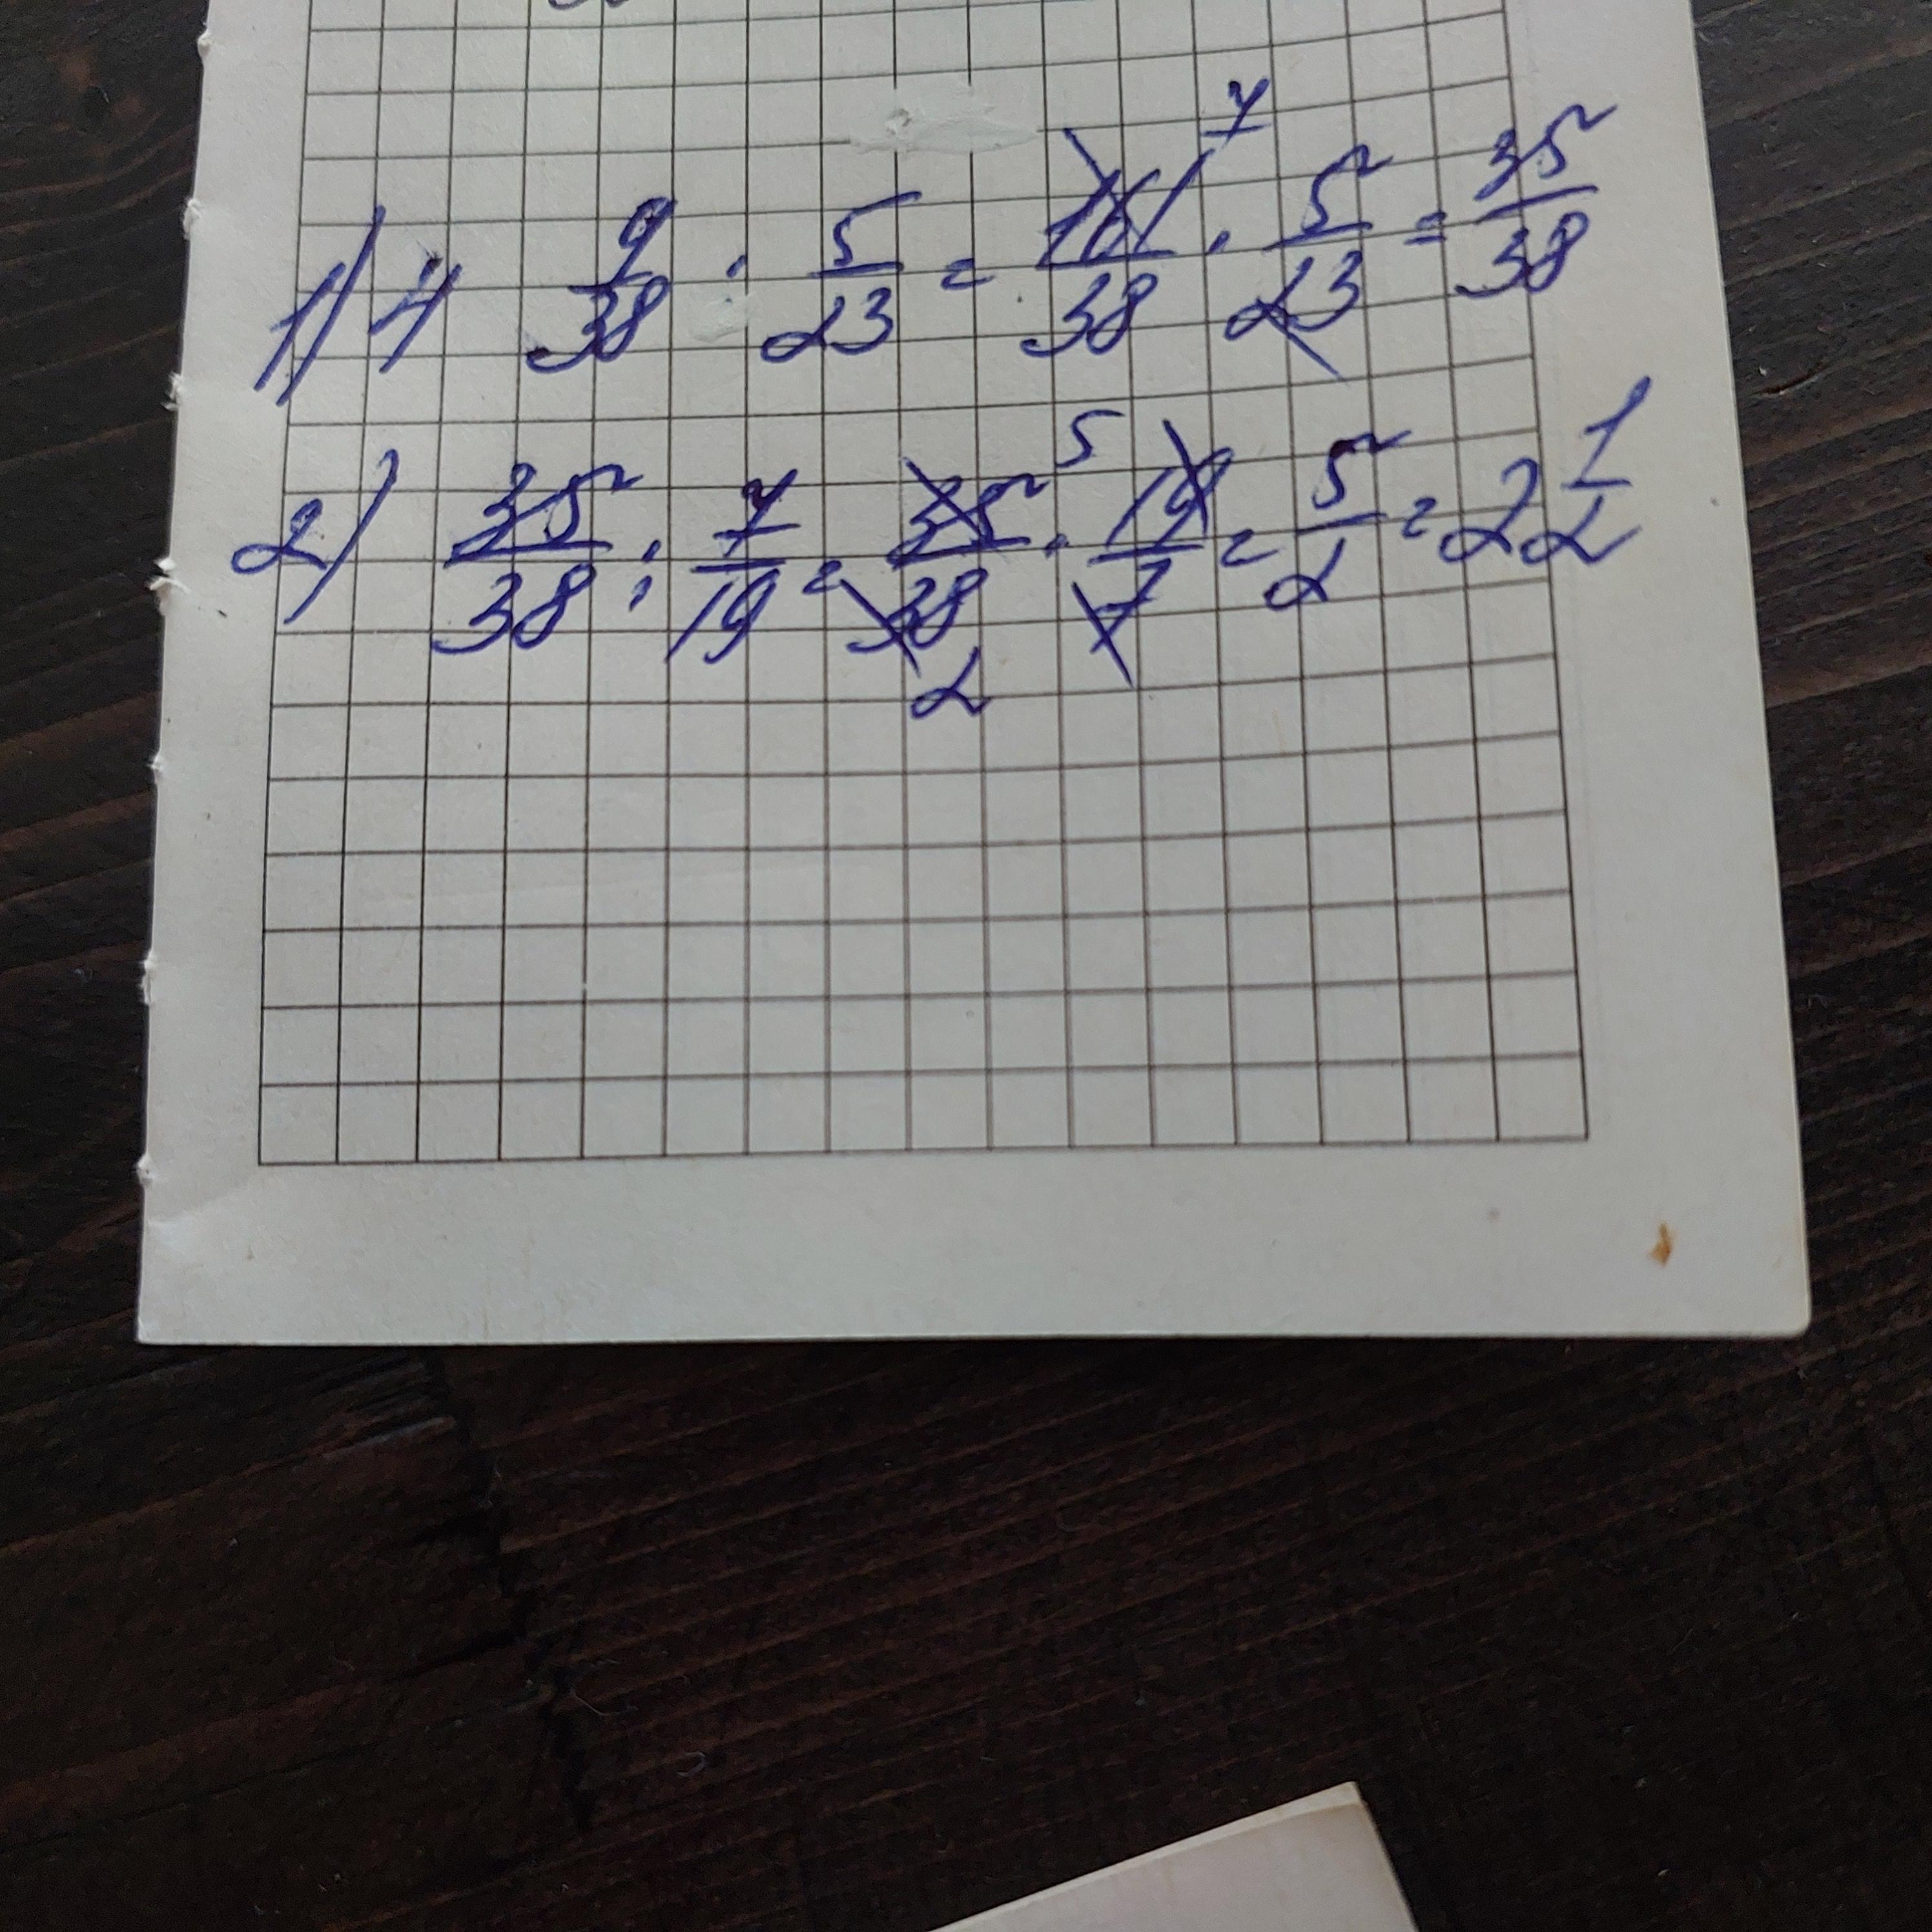 1) 4 9/38 · 5/23 = 161/38 7 · 5/23 = 35/38
2) 35/38 : 7/19 = 35/38 5 2 · 19/7 = 5/2 = 2 1/2